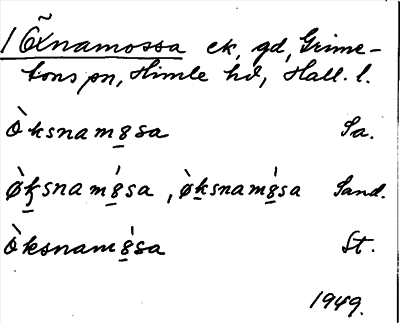 1 Öxnamossa ek, gd, Grime-
tons sn, Himle hd, Hall. l.
ò̀ksnam8sa Sa.
ø̀ksnam8́sa, ø̀ksnam8́sa Sand.
òksnam8́sa St.
1949.